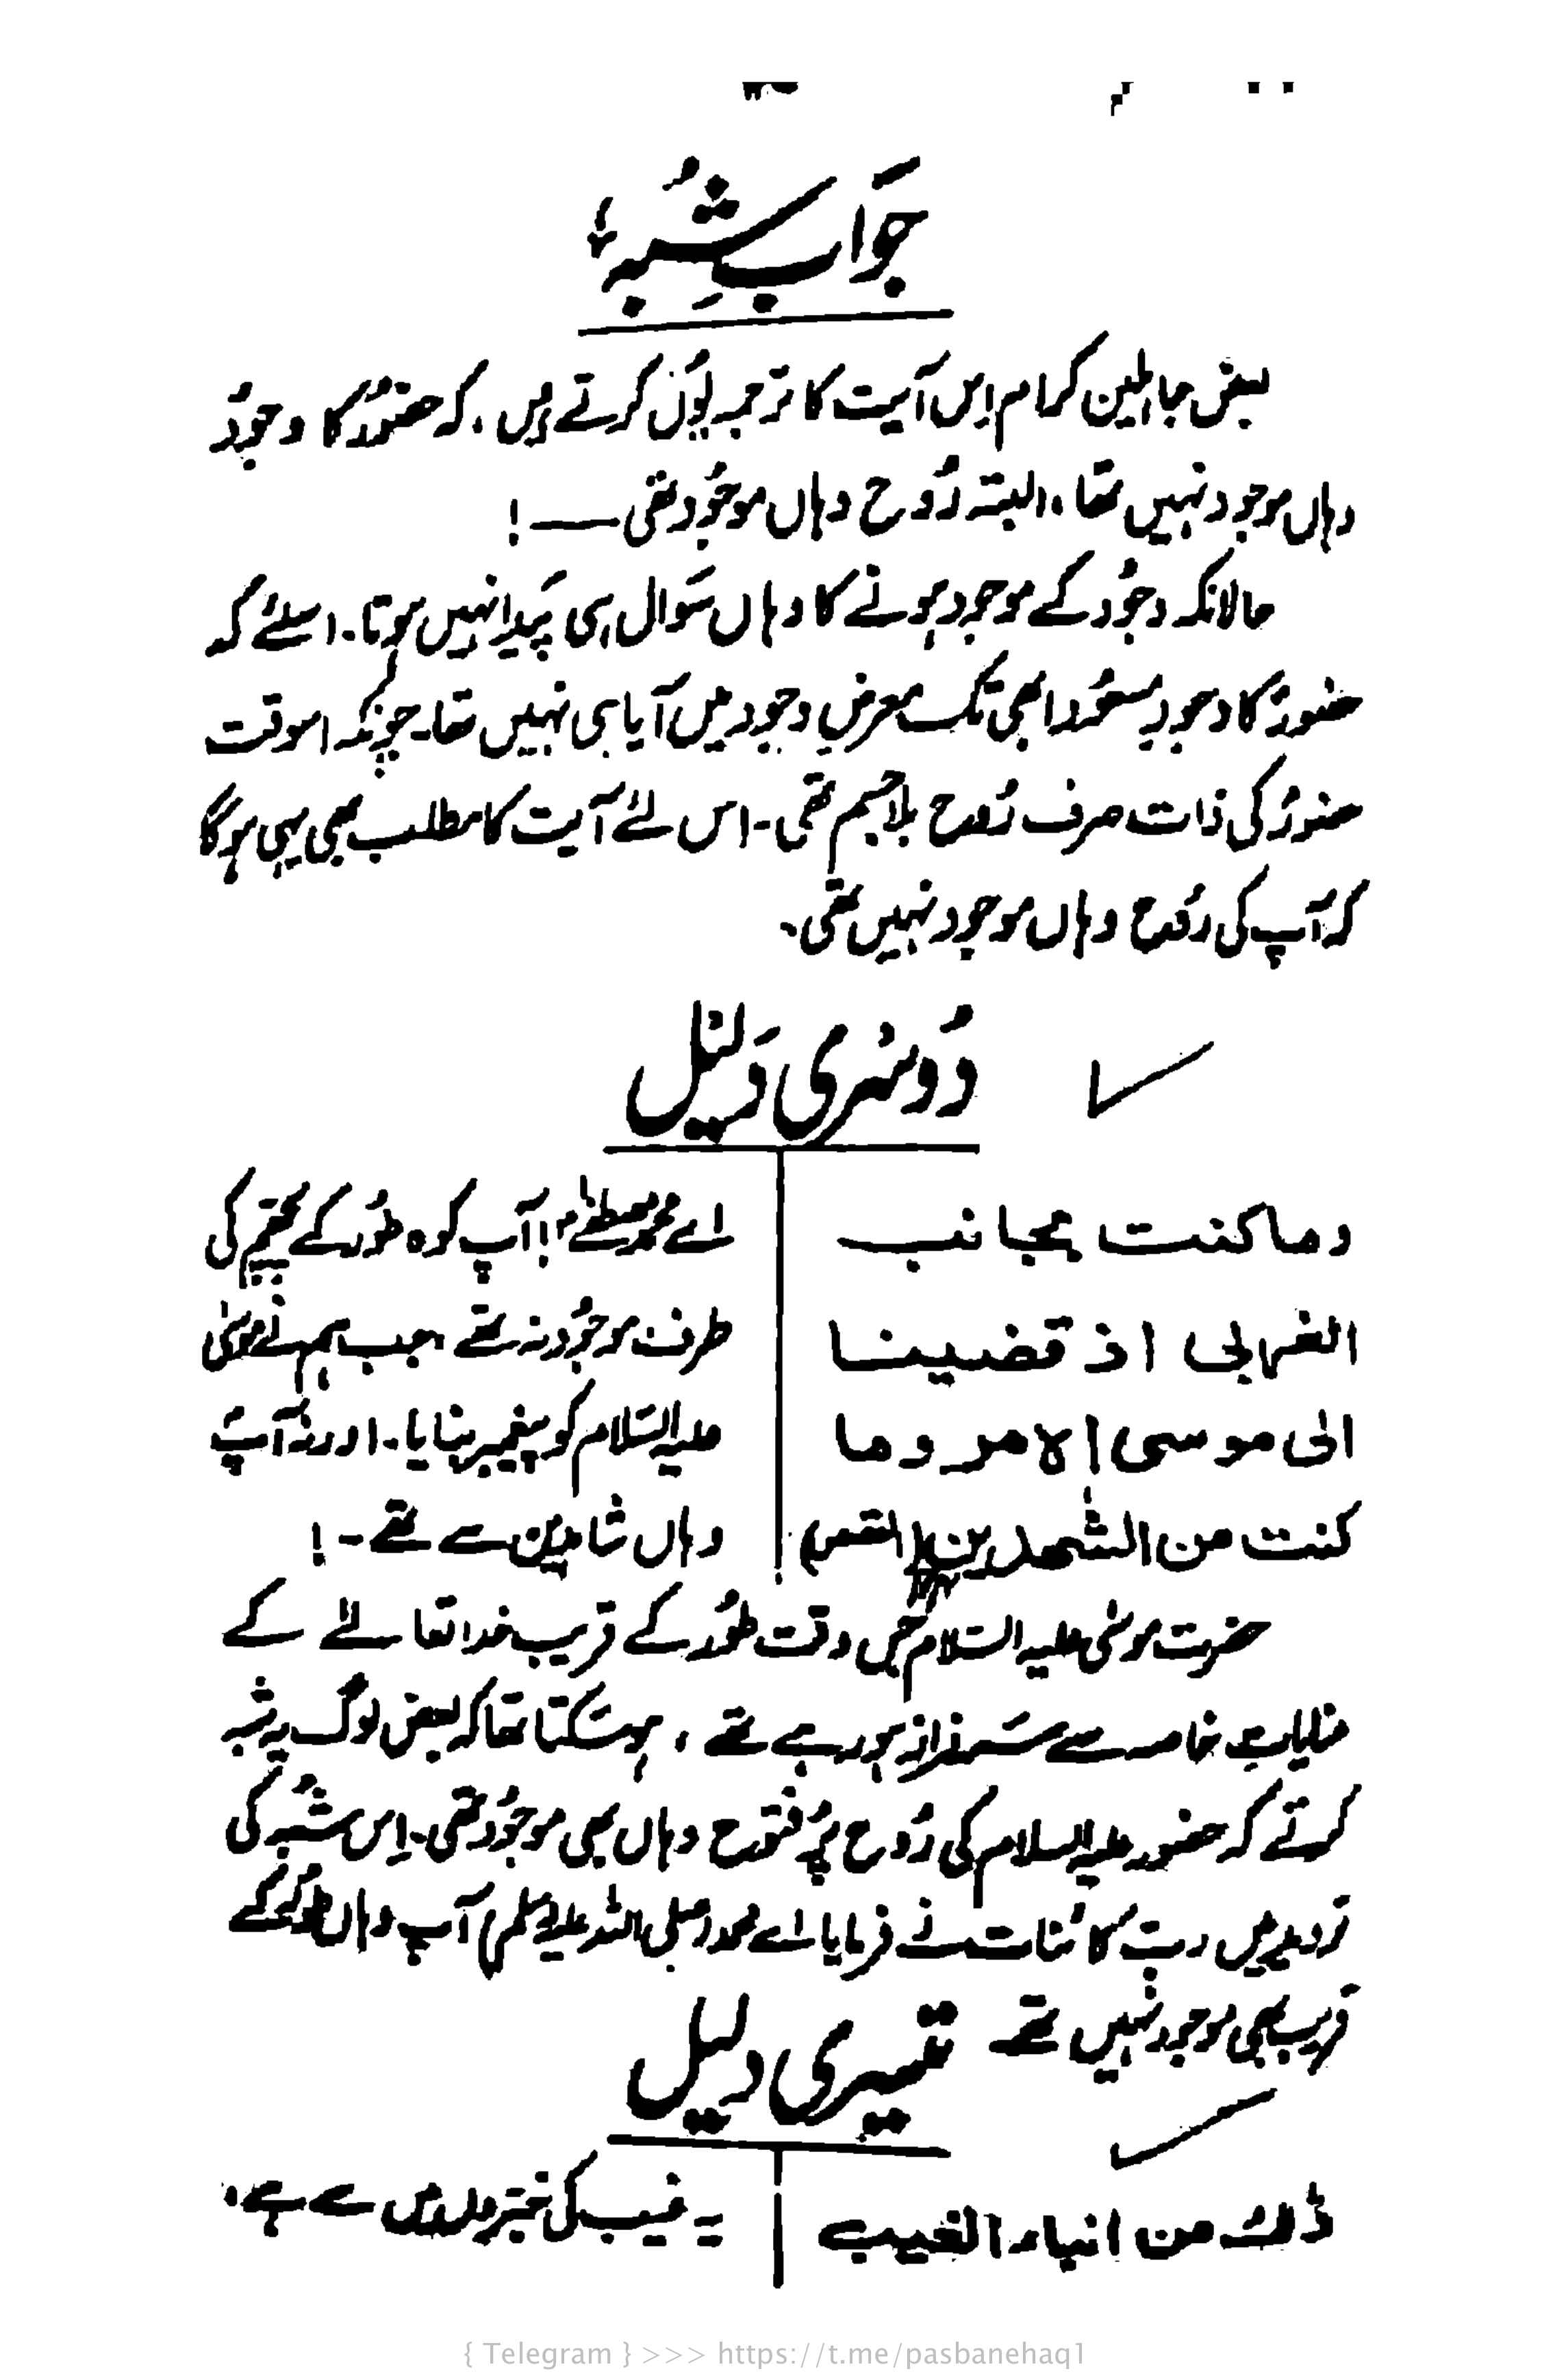 جوابِ شُبہ
بعض جاہلین کرام اِس آیت کا ترجمہ یُوں کرتے ہیں، کہ حضورؐ کا وجُود
وہاں موجود نہیں تھا، البتہ رُوح وہاں موجُود تھی ——!
حالانکہ وجُود کے موجود ہونے کا وہاں سَوال ہی پَیدا نہیں ہوتا۔ اسلئے کہ
حضورؐ کا وجودِ مسعُود ابھی تک معرضِ وجود میں آیا ہی نہیں تھا۔ چونکہ اسوقت
حضورؐ کی ذات صرف رُوح بلاجسم تھی۔ اس لئے آیت کا مطلب بھی یہی ہوگا
کہ آپ کی رُوح وہاں موجود نہیں تھی۔
دُوسری دَلیل
وما کنت بجانب
الغربی اذ قضینا
الی موسی الامر وما
کنت من الشّٰھدین (القصص)
اے محمد مصطفےٰؐ! آپ کوہ طُور کے پچھم کی
طرف موجُود نہ تھے جب ہم نے موسیٰ
علیہ السّلام کو پیغمبر بنایا۔ اور نہ آپ
وہاں شاہدین سے تھے۔!
حضرت موسٰی علیہ السّلام جس وقت طُور کے قریب خدا تعالےٰ کے
خطابِ خاصہ سے سَرفراز ہو رہے تھے، ہوسَکتا تھا کہ بعض لوگ یہ شبہ
کرتے کہ حضور علیہ السلام کی رُوح پُرفتوح وہاں بھی موجُود تھی۔ اِس شُبہ کی
تردید میں ربّ کائنات نے فرمایا اے محمد (صلی اللہ علیہ وسلم) آپ وہاں طُور کے
قریب بھی موجود نہیں تھے
تیسری دلیل
ذٰلک من انباء الغیب
یہ غیب کی خبروں میں سے ہے،
{ Telegram } >>> https://t.me/pasbanehaq1